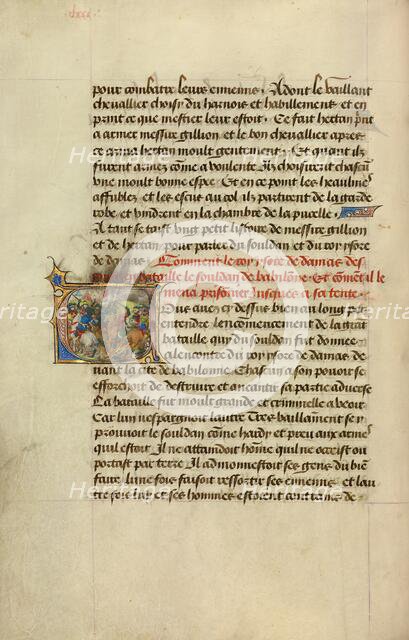 pour combatre leurs ennemis. Adont le vaillant
chevallier choisy du harnois et habillement et en
print ce que mestier leur estoit. Ce fait hertan print
a armer messire gillion et le bon chevallier apres
ce arma hertan moult gentement. Et quant ilz
furent armez come a voulente ilz choisirent chascun
une moult bonne espee. Et en ce point les heaulmes
affublez et les escus au col ilz partirent de la garde
robe et vindrent en la chambre de la pucelle.
A tant se taist ung petit listoire de messire gillion
et de hertan pour parler du souldan et du roy ysore
de damas. Comment le roy ysore de damas des
bataille le souldan de babilonne et coment il le
mena prisonnier jusques a sa tente.
Que avez cy dessus bien au long peu
entendre lencommencement de la grant
bataille qui du souldan fut donnee
alencontre du roy ysore de damas de
vant la cite de babilonne. Chascun a son povoir se
efforcoit de destruire et aneantir sa partie adverse
La bataille fut moult grande et criminelle a veoir
Car lun nespargnoit lautre Tres vaillament se y
prouvoit le souldan come hardy et preu aux armes
quil estoit. Il nattaindoit home quil ne occist ou
portast par terre Il admonnestoit ses gens du bien
faire. lune fois faisoit ressortir ses ennemis et lau
tre fois luy et ses hommes estoient contrains de
Heritage
Heritage
Heritage